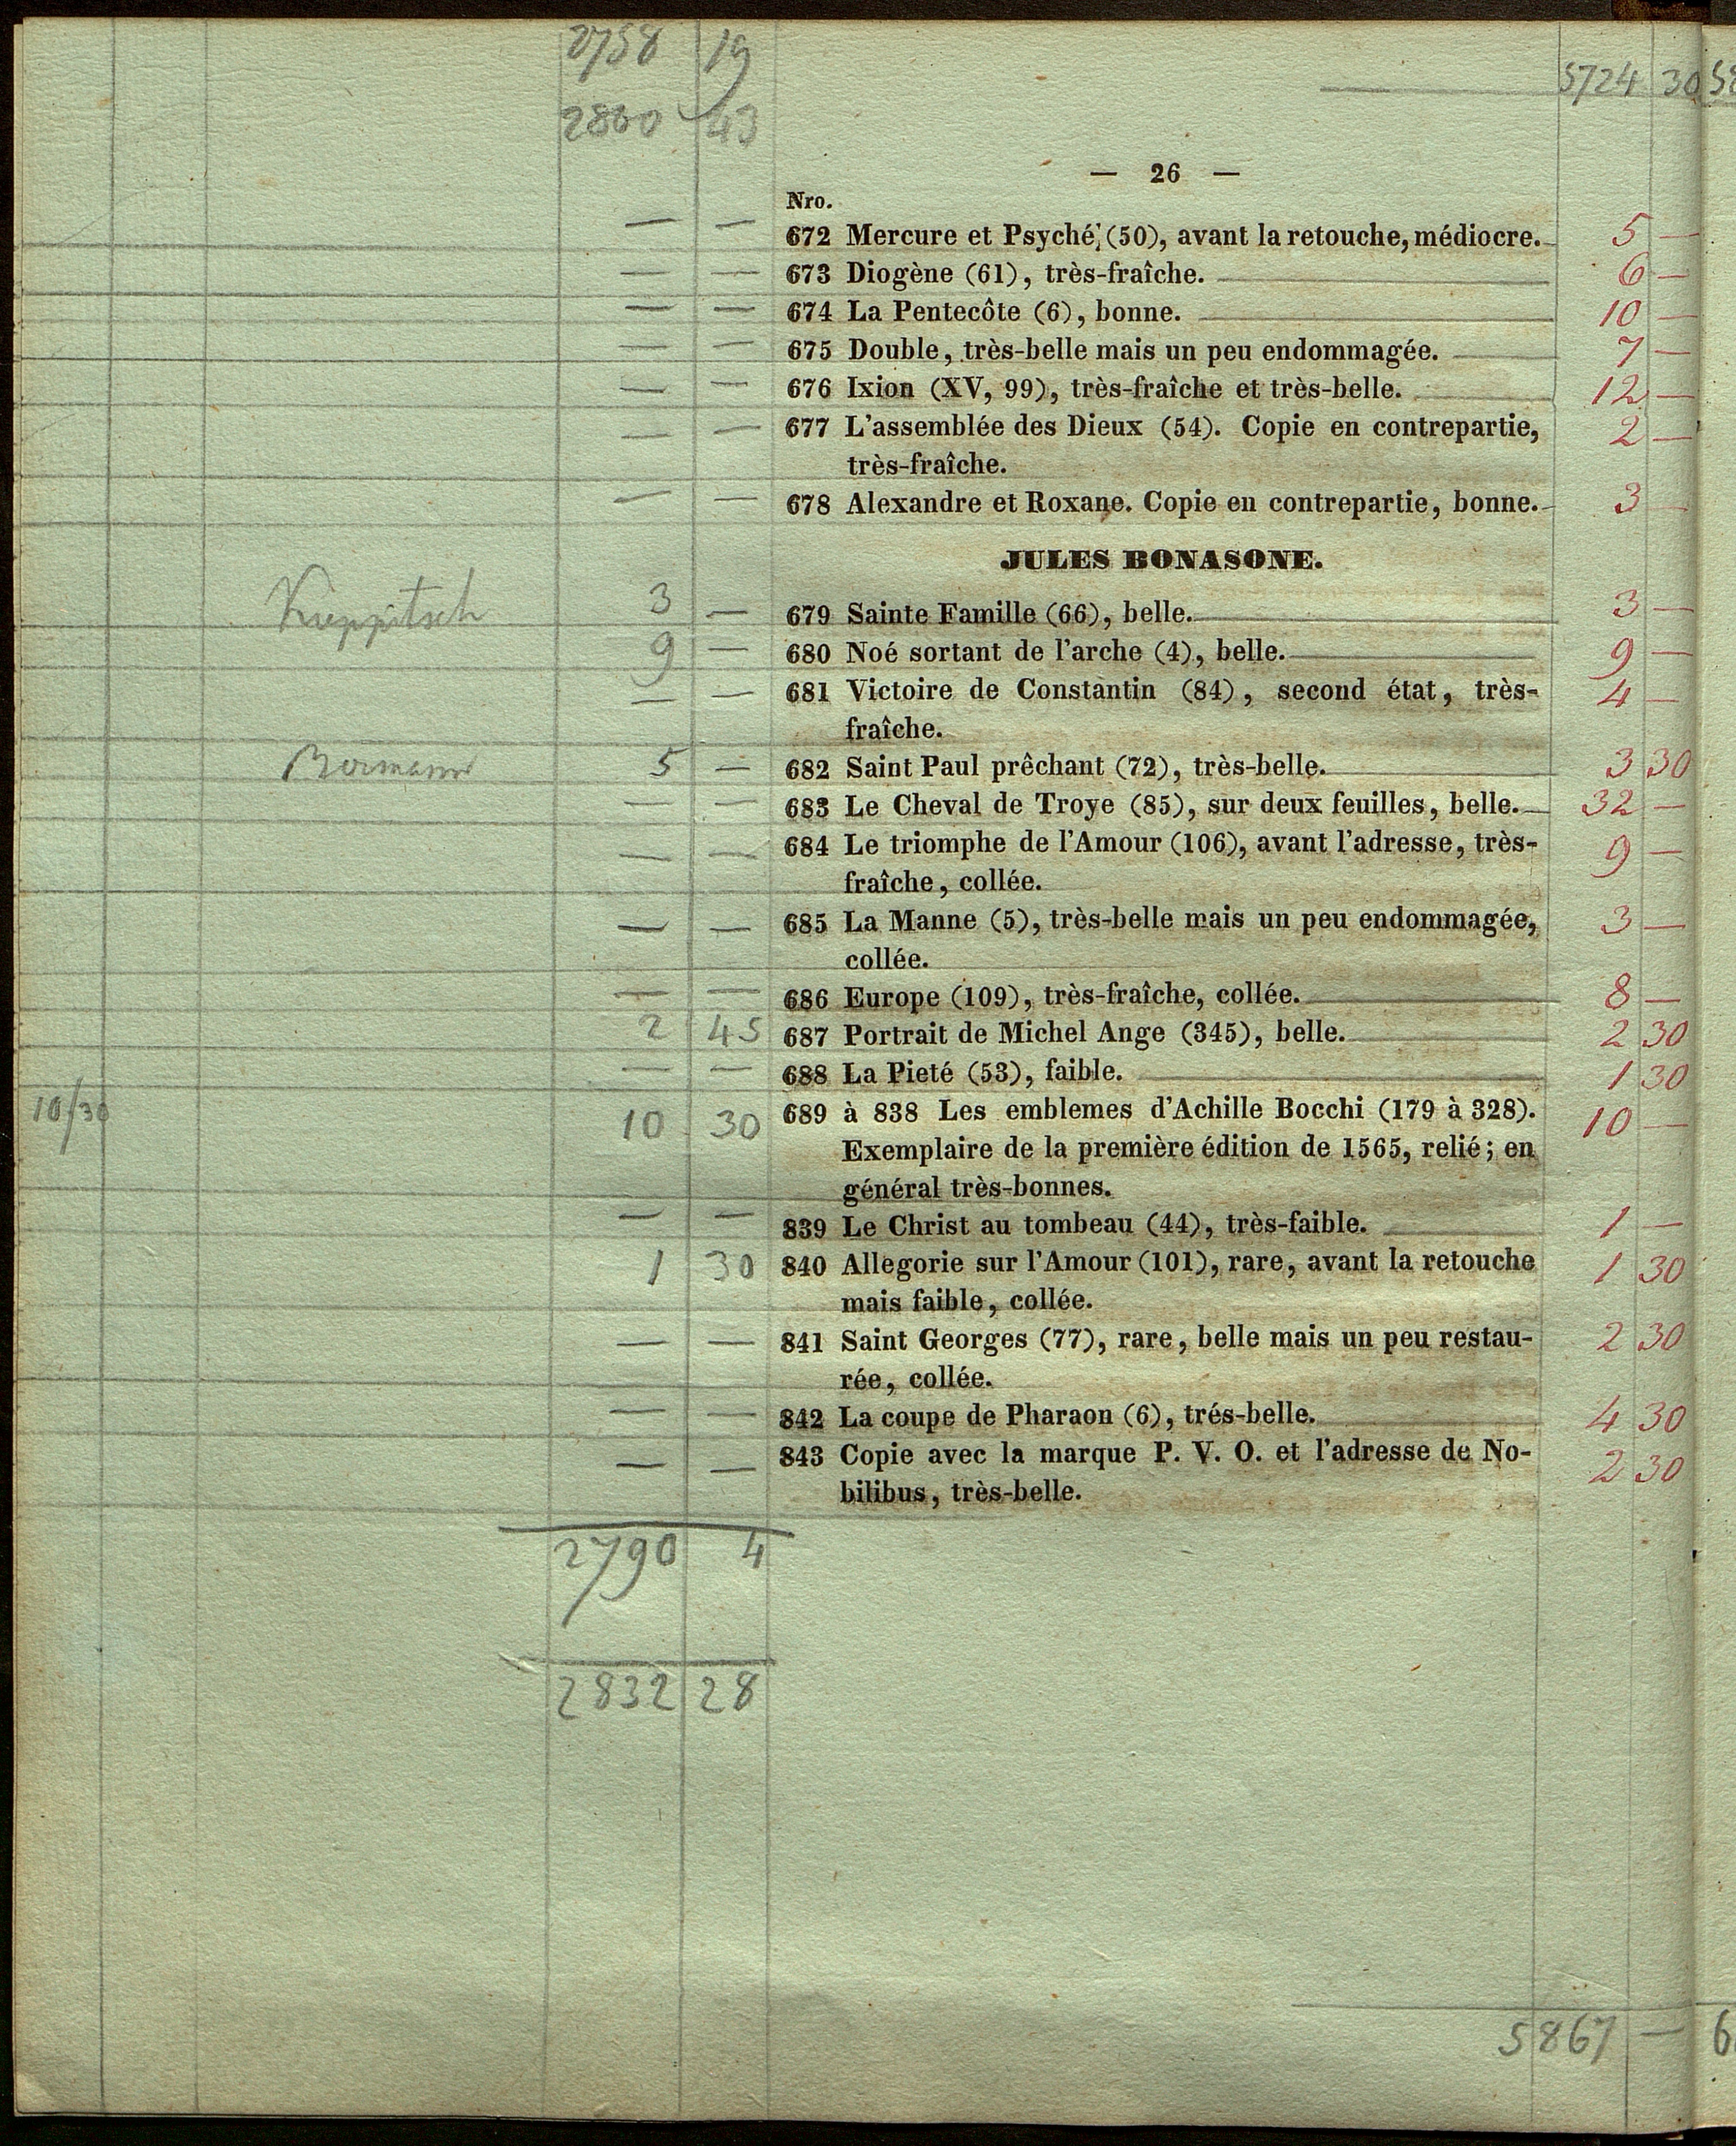 2758 19 5724 30
2800 43
— 26 —
Nro.
— — 672 Mercure et Psyché, (50), avant la retouche, médiocre. 5 —
— — 673 Diogène (61), très-fraîche. 6 —
— — 674 La Pentecôte (6), bonne. 10 —
— — 675 Double, très-belle mais un peu endommagée. 7 —
— — 676 Ixion (XV, 99), très-fraîche et très-belle. 12 —
— — 677 L'assemblée des Dieux (54). Copie en contrepartie, 2 —
très-fraîche.
— — 678 Alexandre et Roxane. Copie en contrepartie, bonne. 3 —
JULES BONASONE.
3 — 679 Sainte Famille (66), belle. 3 —
9 — 680 Noé sortant de l'arche (4), belle. 9 —
— — 681 Victoire de Constantin (84), second état, très- 4 —
fraîche.
5 — 682 Saint Paul prêchant (72), très-belle. 3 30
— — 683 Le Cheval de Troye (85), sur deux feuilles, belle. 32 —
— — 684 Le triomphe de l'Amour (106), avant l'adresse, très- 9 —
fraîche, collée.
— — 685 La Manne (5), très-belle mais un peu endommagée, 3 —
collée.
— — 686 Europe (109), très-fraîche, collée. 8 —
2 45 687 Portrait de Michel Ange (345), belle. 2 30
— — 688 La Pieté (53), faible. 1 30
10/30 10 30 689 à 838 Les emblemes d'Achille Bocchi (179 à 328). 10 —
Exemplaire de la première édition de 1565, relié; en
général très-bonnes.
— — 839 Le Christ au tombeau (44), très-faible. 1 —
1 30 840 Allegorie sur l'Amour (101), rare, avant la retouche 1 30
mais faible, collée.
— — 841 Saint Georges (77), rare, belle mais un peu restau- 2 30
rée, collée.
— — 842 La coupe de Pharaon (6), trés-belle. 4 30
— — 843 Copie avec la marque P. V. O. et l'adresse de No- 2 30
bilibus, très-belle.
2790 4
2832 28
5867 —